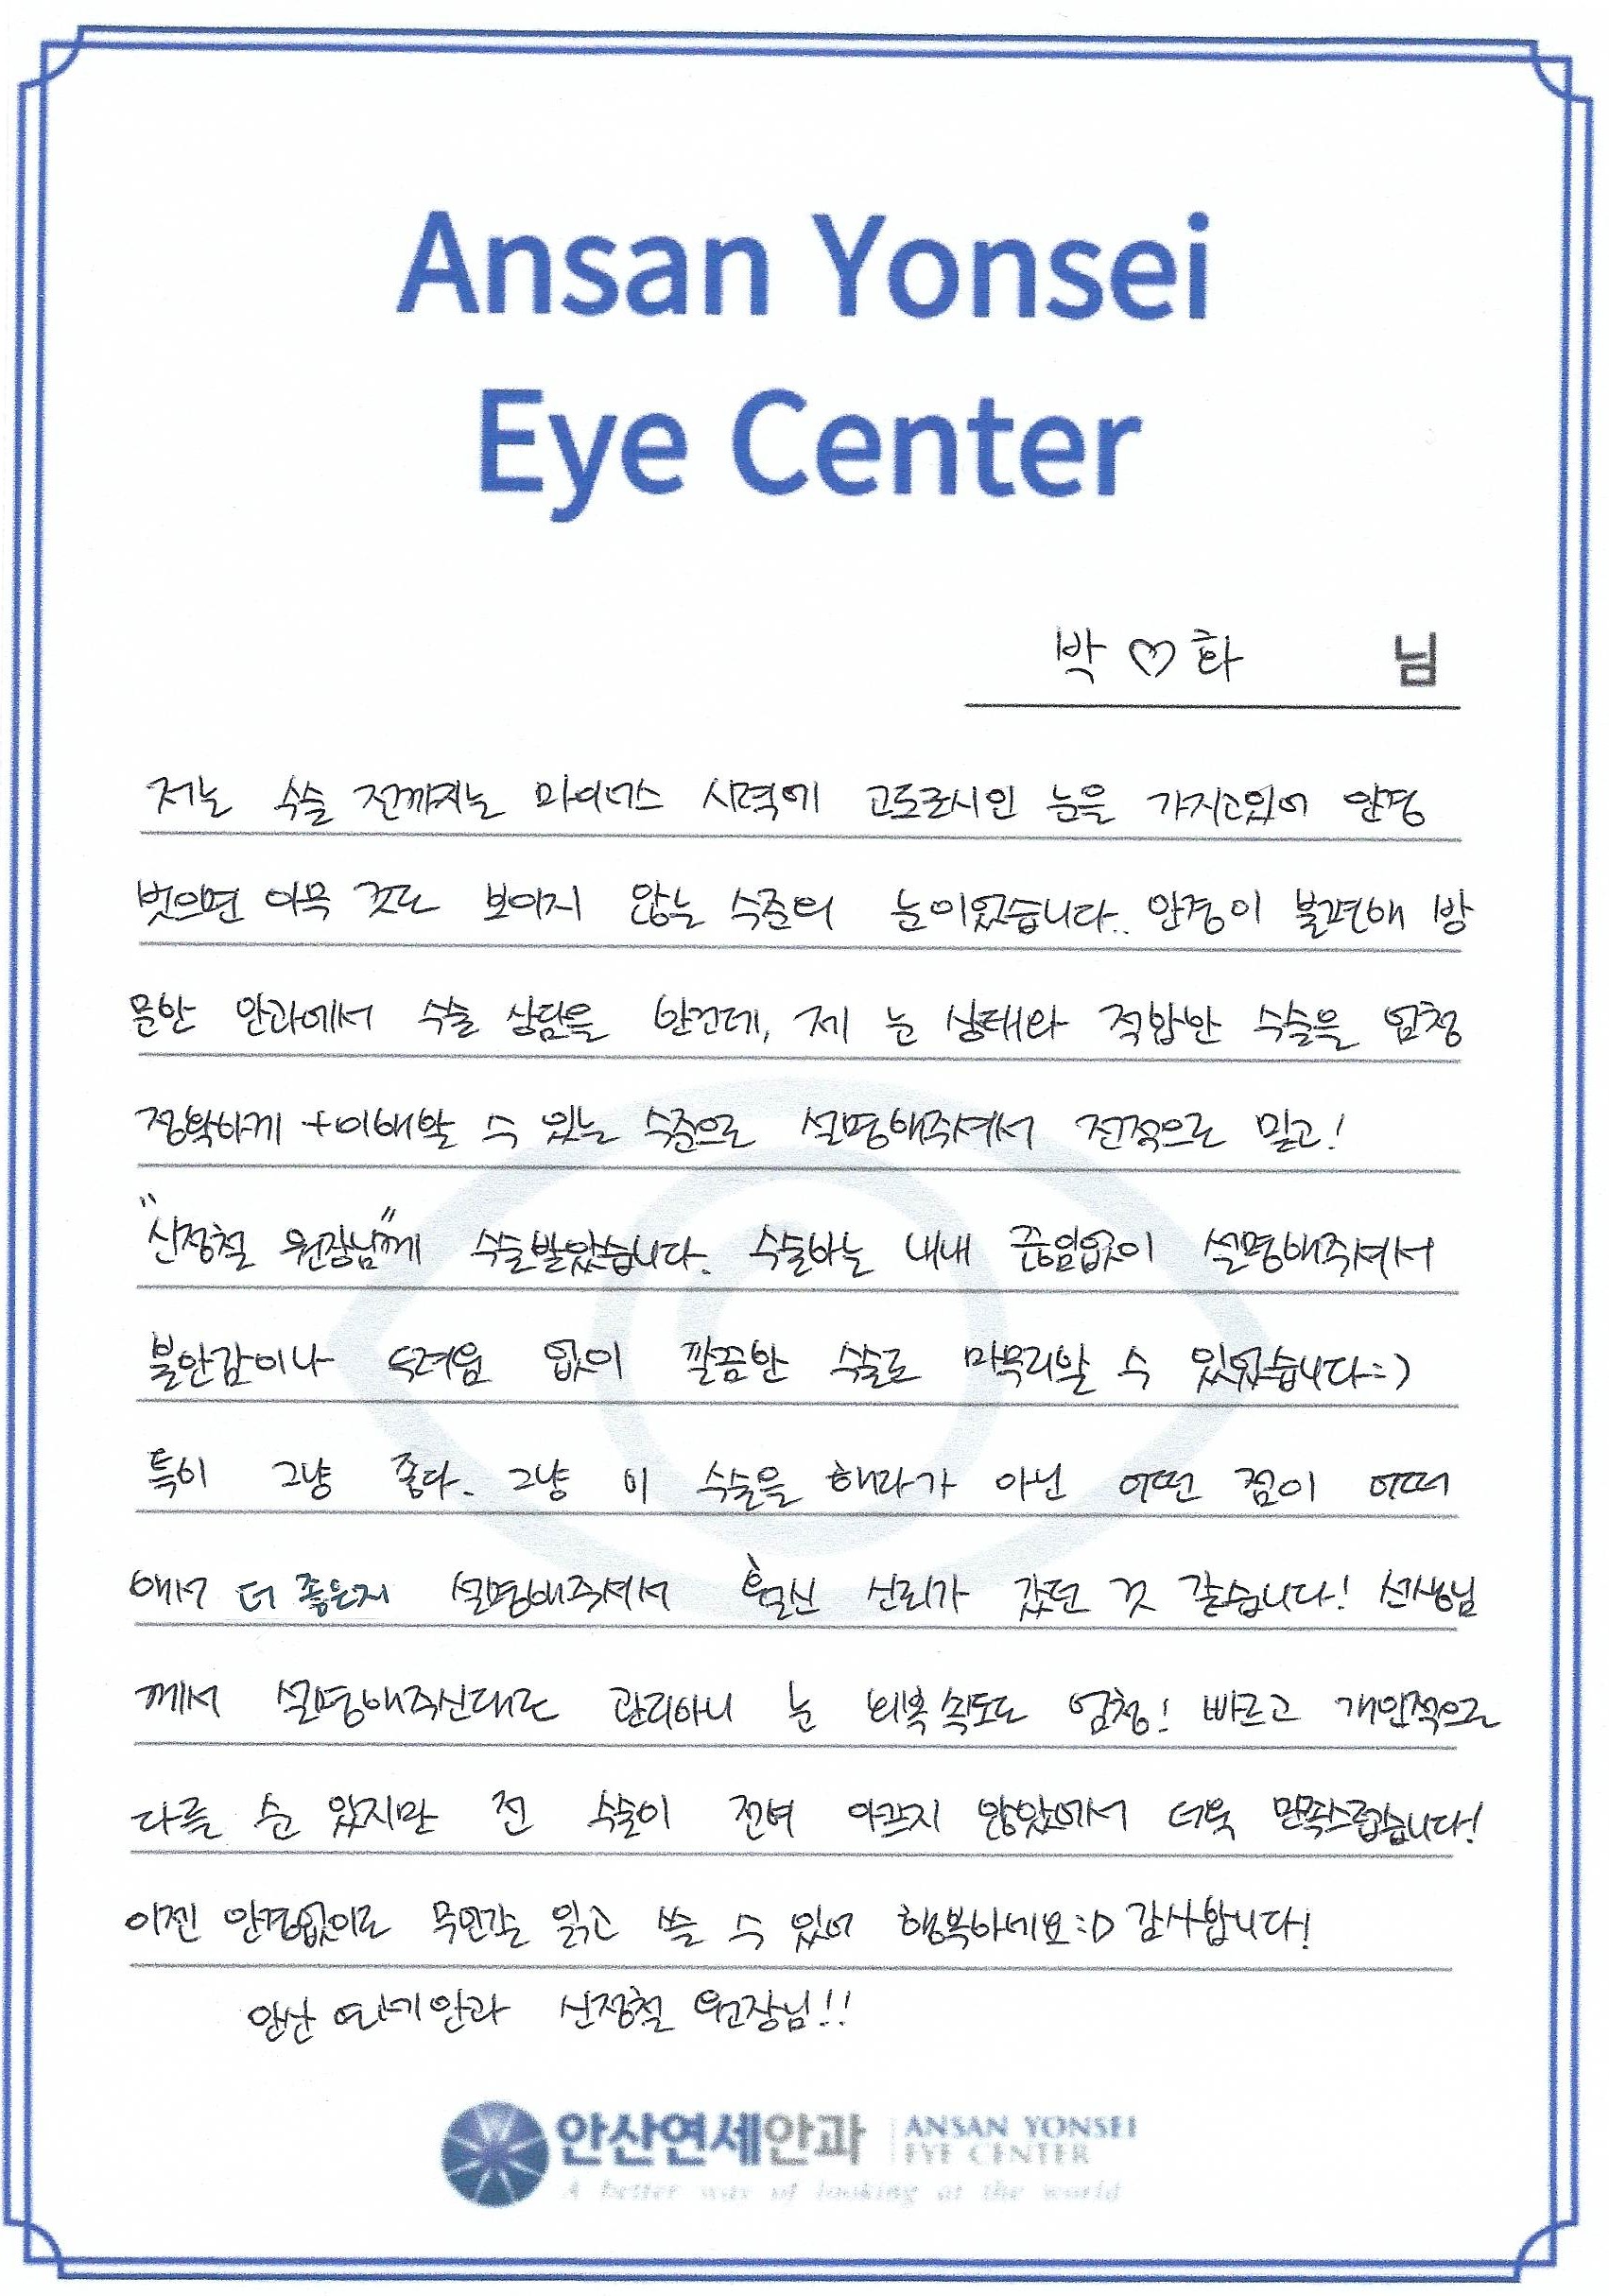 Ansan Yonsei
Eye Center
박♡화 님
저는 수술 전까지는 마이너스 시력에 고도근시인 눈을 가지고있어 안경
벗으면 아무 것도 보이지 않는 수준의 눈이었습니다.. 안경이 불편해 방
문한 안과에서 수술 상담을 받은건데, 제 눈 상태와 적합한 수술을 엄청
정확하게 +이해할 수 있는 수준으로 설명해주셔서 전적으로 믿고!
"신정철 원장님"께 수술받았습니다. 수술하는 내내 끊임없이 설명해주셔서
불안감이나 두려움 없이 깔끔한 수술로 마무리할 수 있었습니다:)
특히 그냥 좋다. 그냥 이 수술을 해라가 아닌 어떤 점이 어떠
해서 더 좋은지 설명해주셔서 훨신 신뢰가 갔던 것 같습니다! 선생님
께서 설명해주신대로 관리하니 눈 회복 속도도 엄청! 빠르고 개인적으로
다를 순 있지만 전 수술이 전혀 아프지 않았어서 더욱 만족스럽습니다!
이젠 안경없이도 무언갈 읽고 쓸 수 있어 행복하네요:D 감사합니다!
안산 연세안과 신정철 원장님!!
안산연세안과 ANSAN YONSEI
EYE CENTER
A better way of looking at the world